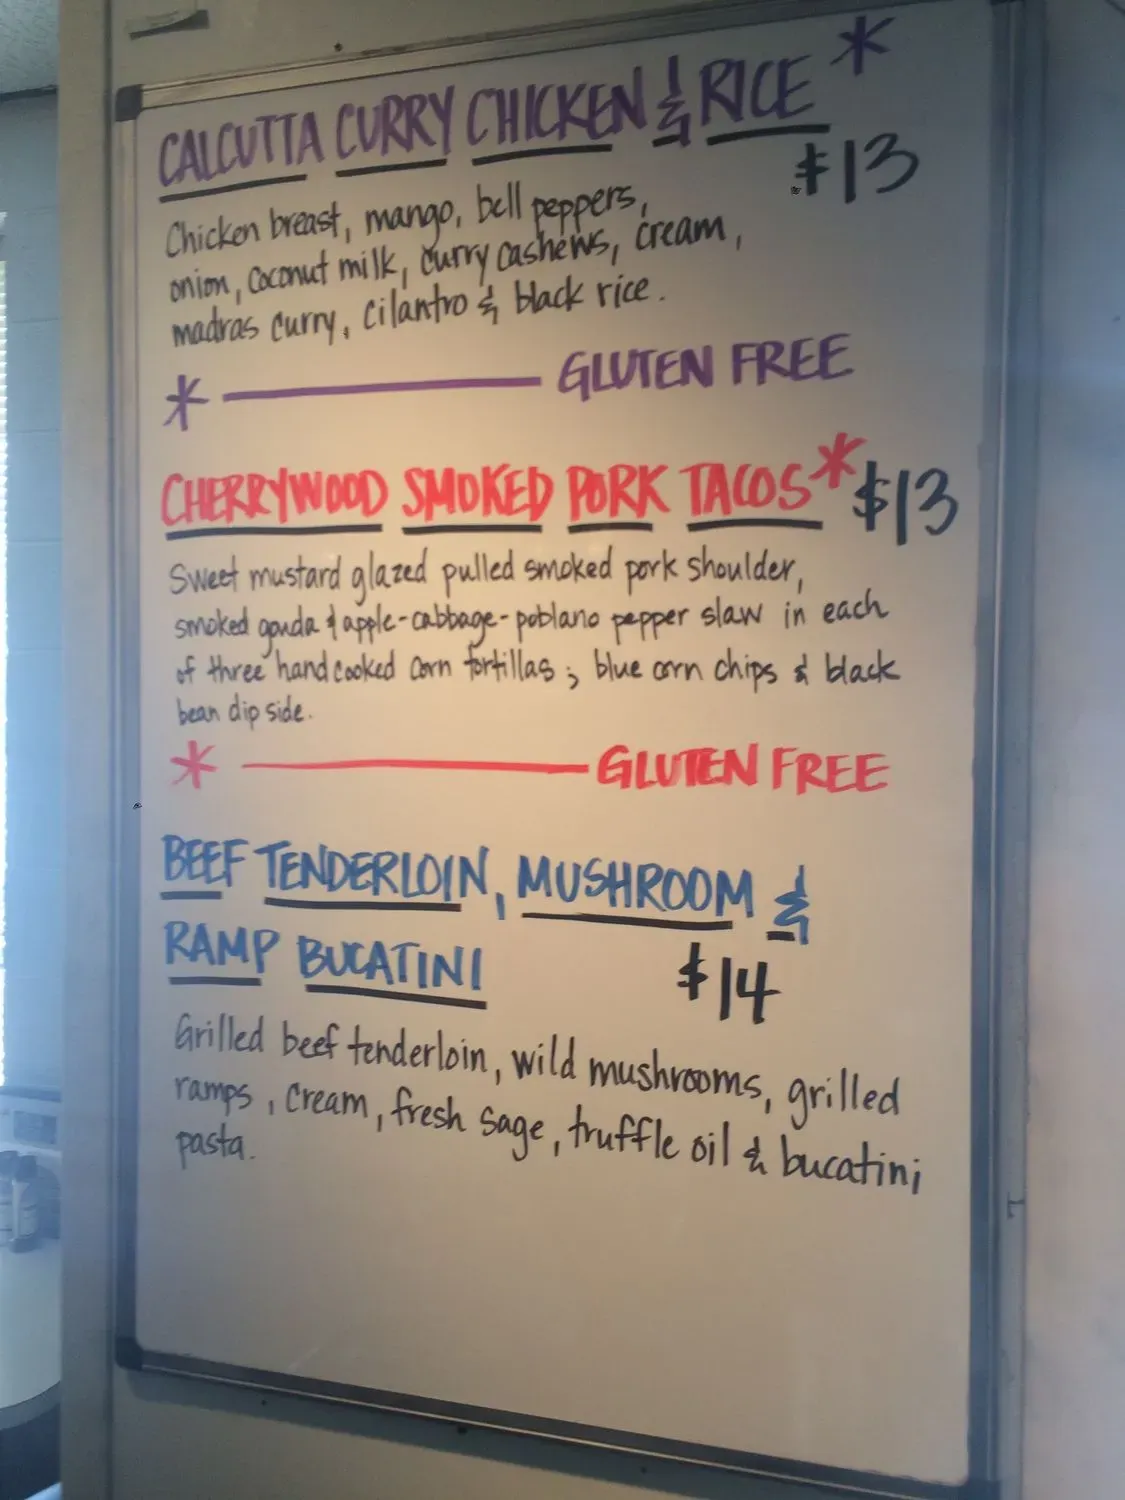 CALCUTTA CURRY CHICKEN & RICE *
$13
Chicken breast, mango, bell peppers,
onion, coconut milk, curry cashews, cream,
madras curry, cilantro & black rice.
* GLUTEN FREE
CHERRYWOOD SMOKED PORK TACOS * $13
Sweet mustard glazed pulled smoked pork shoulder,
smoked gouda & apple-cabbage-poblano pepper slaw in each
of three hand cooked corn tortillas; blue corn chips & black
bean dip side.
* GLUTEN FREE
BEEF TENDERLOIN, MUSHROOM &
RAMP BUCATINI $14
Grilled beef tenderloin, wild mushrooms, grilled
ramps, cream, fresh sage, truffle oil & bucatini
pasta.